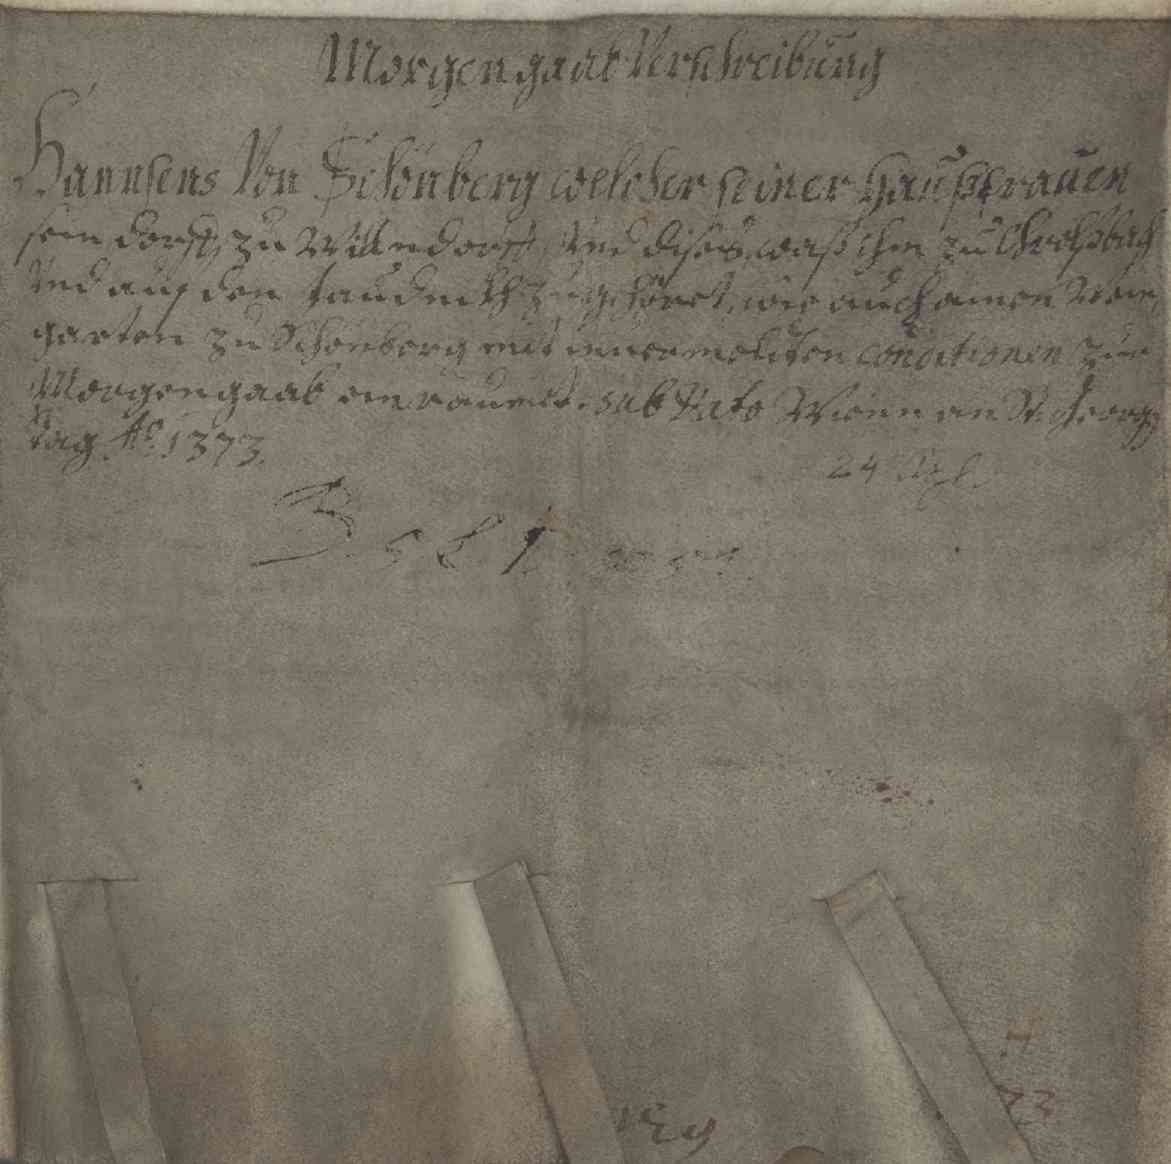 Morgengaab Verschreibung
Hannsens Von Schönberg welcher seiner Haußfrauen
sein dorff zu Willendorff, Und dises, waß ihm zu
Und auf den zugehöret, wie auch ainen Wein
garten zu Schönberg mit innvermelten conditionen zur
Morgengaab einraumet. sub dato Wienn an St. Georgy
tag Aō. 1373.
24 Apl.